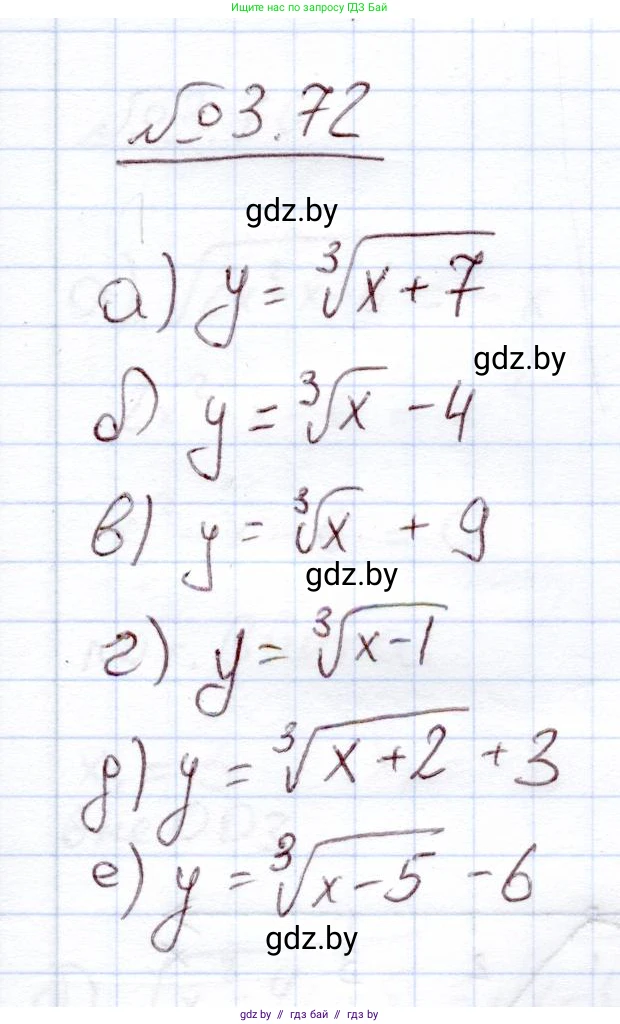 Ищите нас по запросу ГДЗ Бай
№ 3.72
gdz.by
а) y = ∛(x + 7)
gdz.by
б) y = ∛x - 4
в) y = ∛x + 9
gdz.by
г) y = ∛(x - 1)
д) y = ∛(x + 2) + 3
е) y = ∛(x - 5) - 6
gdz.by
gdz.by // гдз бай // гдз by